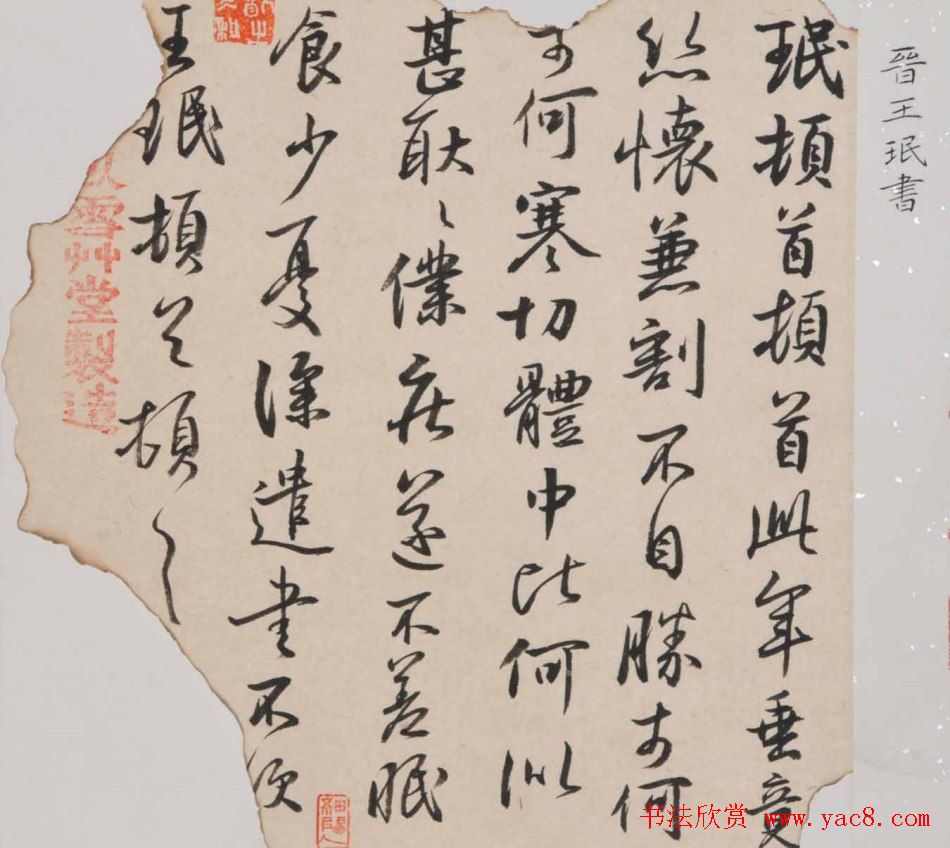 晉王珉書
珉頓首頓首此年垂竟
悲懷兼割不自勝奈何
奈何寒切體中比何似
甚耿〻僕疾遂不善眠
食少憂深遣書不次
王珉頓首頓〻
雪艸堂製造
书法欣赏 www.yac8.com